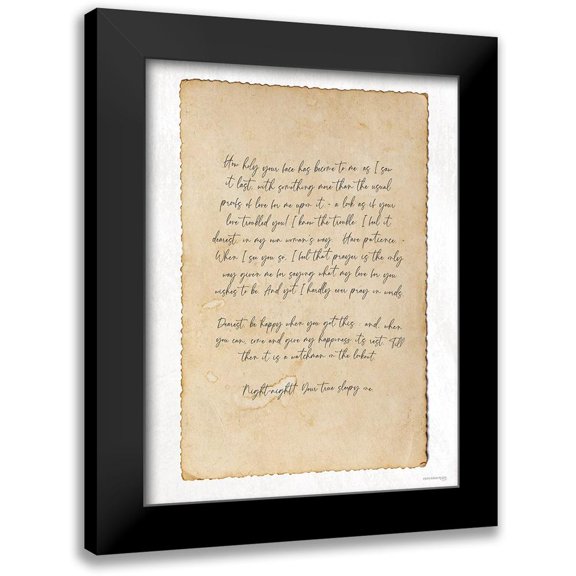 How holy your face has become to me as I saw
it last, with something more than the usual
proofs of love for me upon it - a look as if your
love troubled you! I know the trouble. I feel it
dearest, in my own woman's way. Have patience. -
When I see you so, I feel that prayer is the only
way given me for saying what my love for you
wishes to be. And yet I hardly ever pray in words.
Dearest, be happy when you get this. and, when
you can, come and give my happiness its rest. Till
then it is a watchman on the lookout.
"Night-night!" Your true sleepy one.